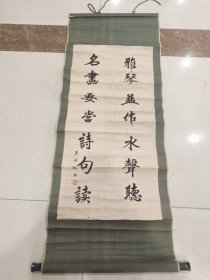 雅琴益作水聲聽
名畫要當詩句讀